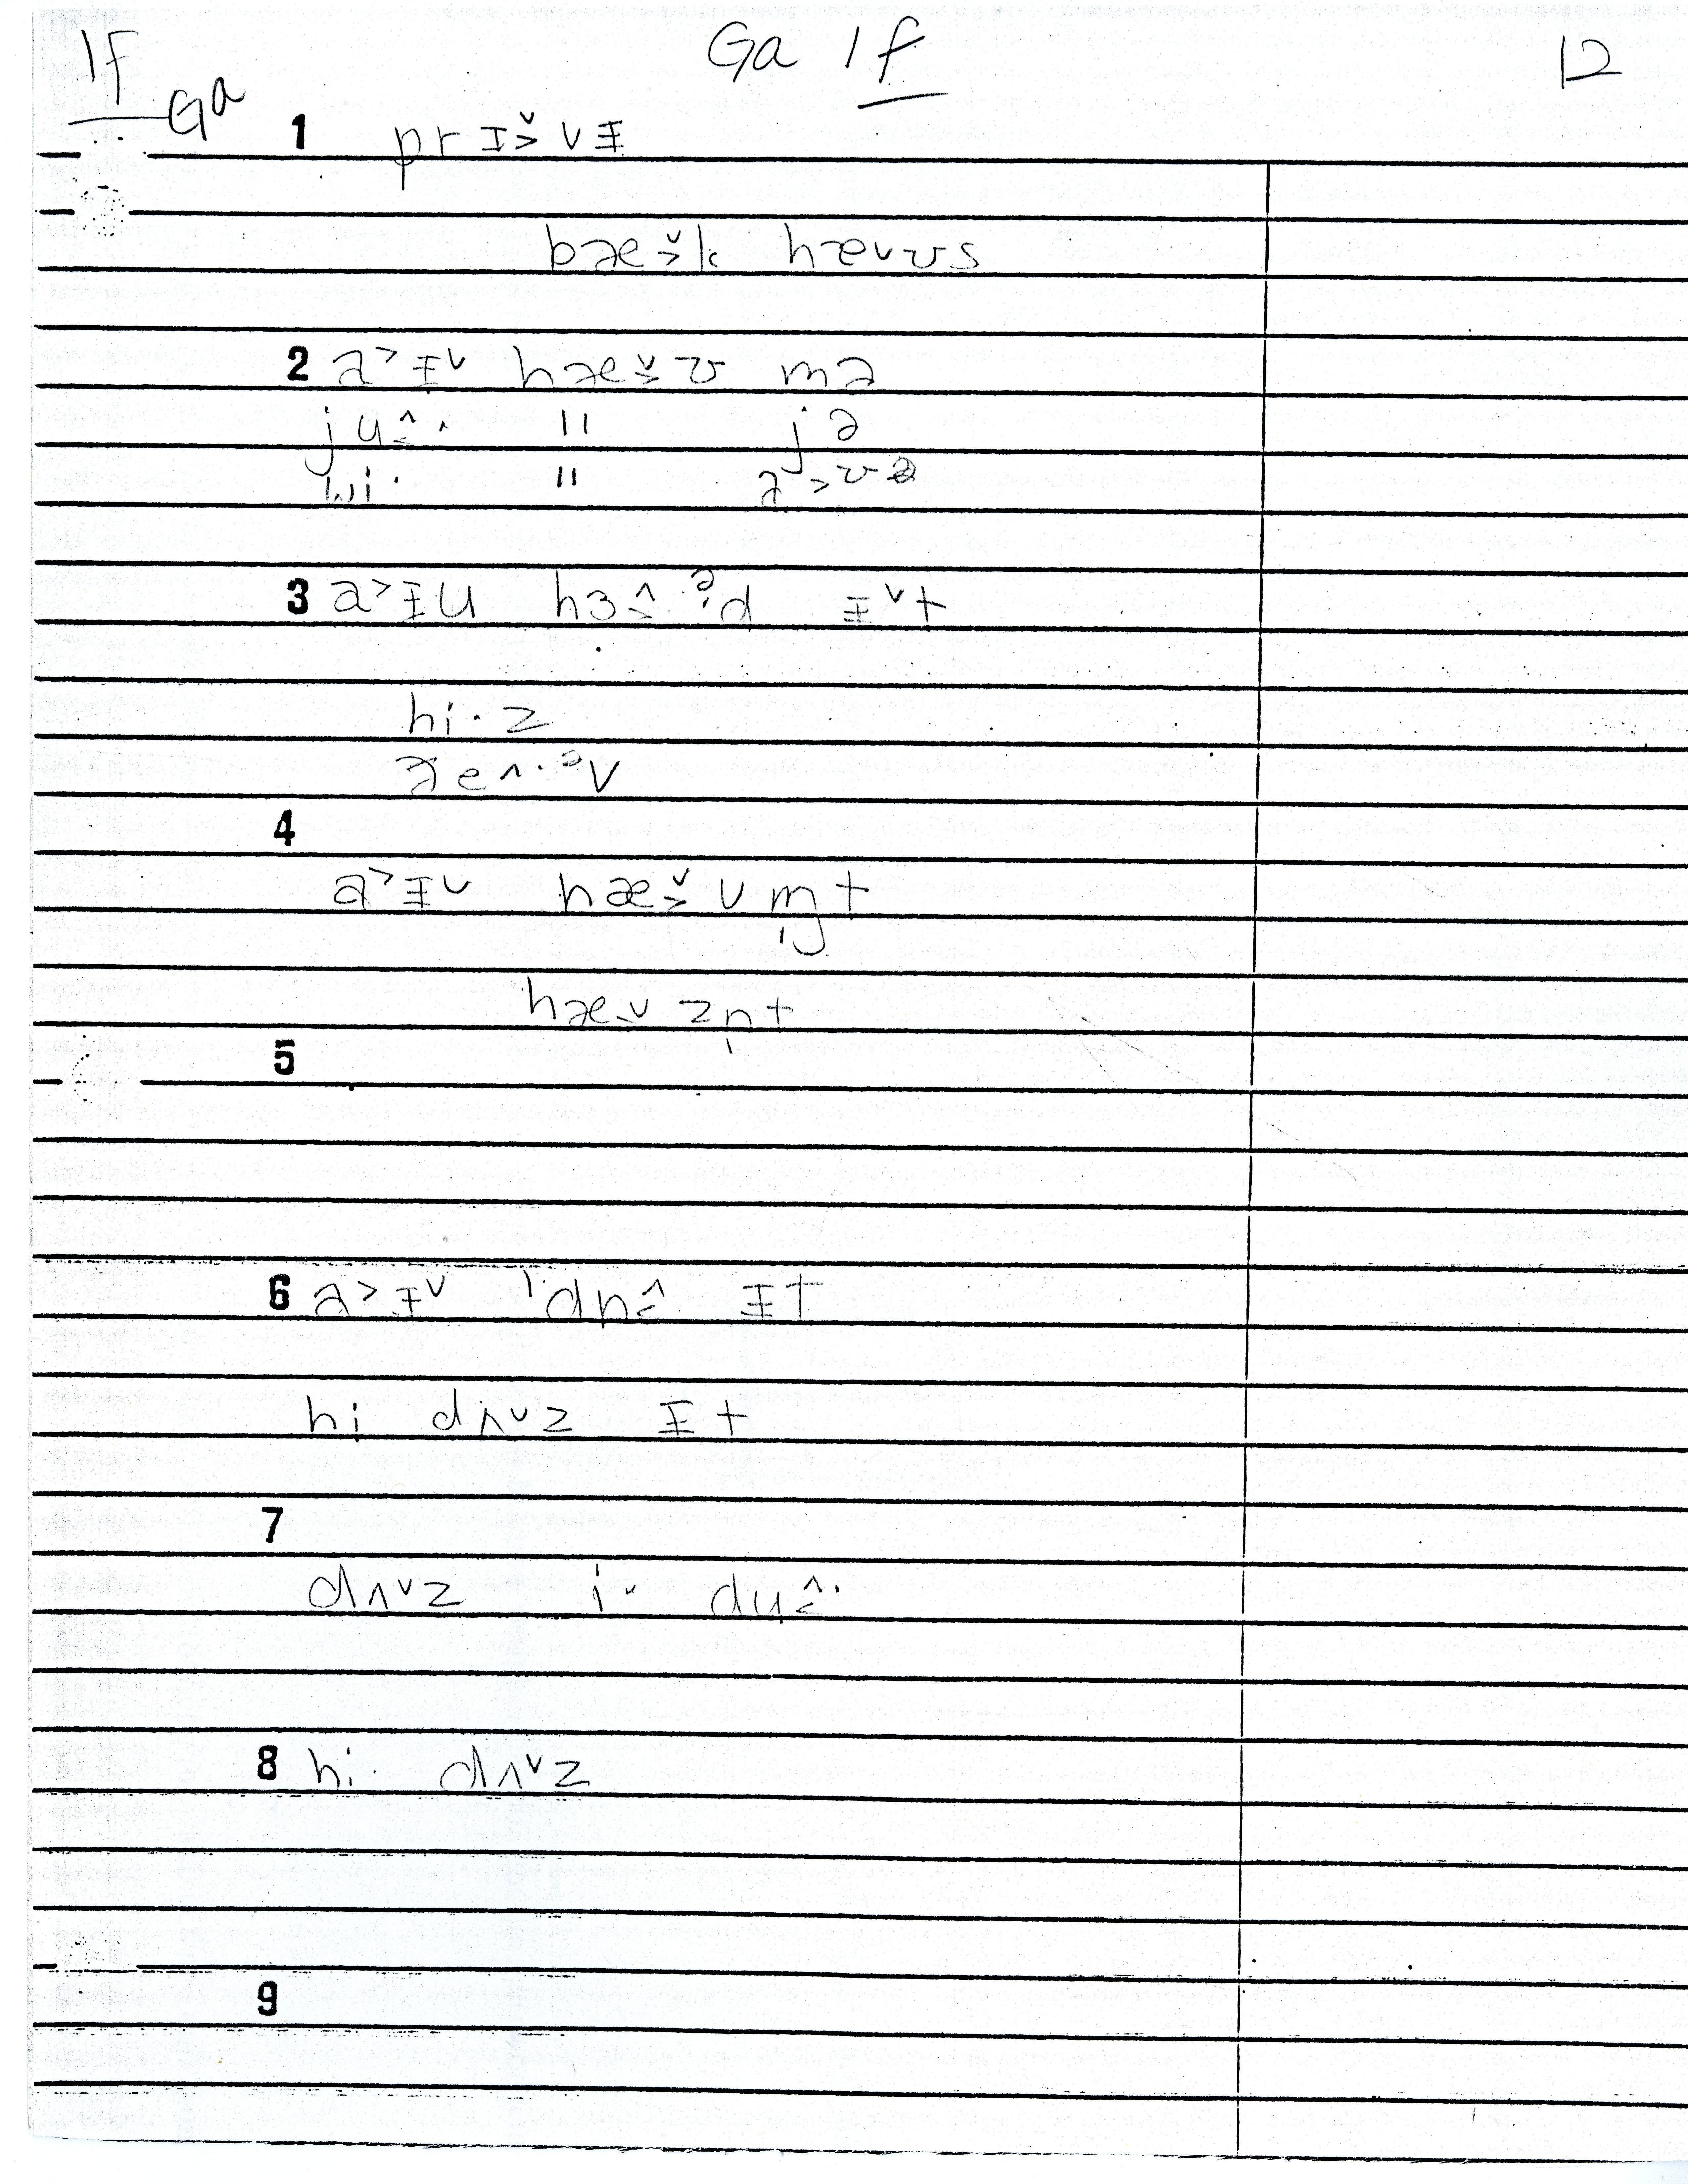 1F Ga Ga 1f 12
1 prɪ̵>̌vɪ̵
bæ>̌k hæᴠʊs
2 a˃ɪ̵ᵛ hæ>̌ʊ mə
ju<̂· " jə
wi· " a˃ʊə
3 a˃ɪ̵u hɜ<̂ᵊ·d ɪ̵ᵛt
hi·z
ðeʌ·ᵊv
4
a˃ɪ̵ᵛ hæ>̌vm̩t
hæᵥzn̩t
5
6 a˃ɪ̵ᵛ ˈdn<̂ ɪ̵t
hi dʌᵛz ɪ̵t
7
dʌᵛz i· du<̂·
8 hi· dʌᵛz
9